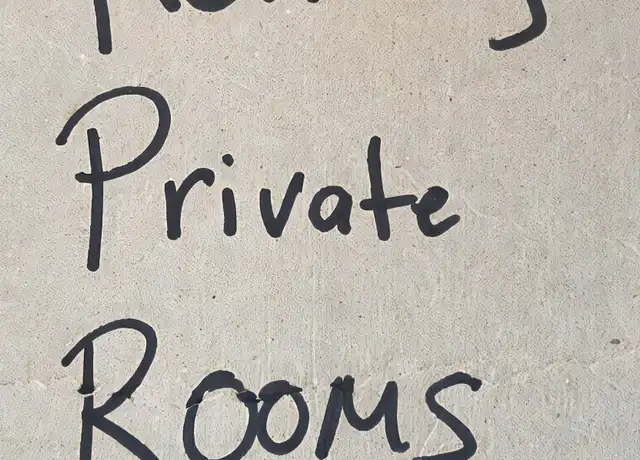 Private
Rooms